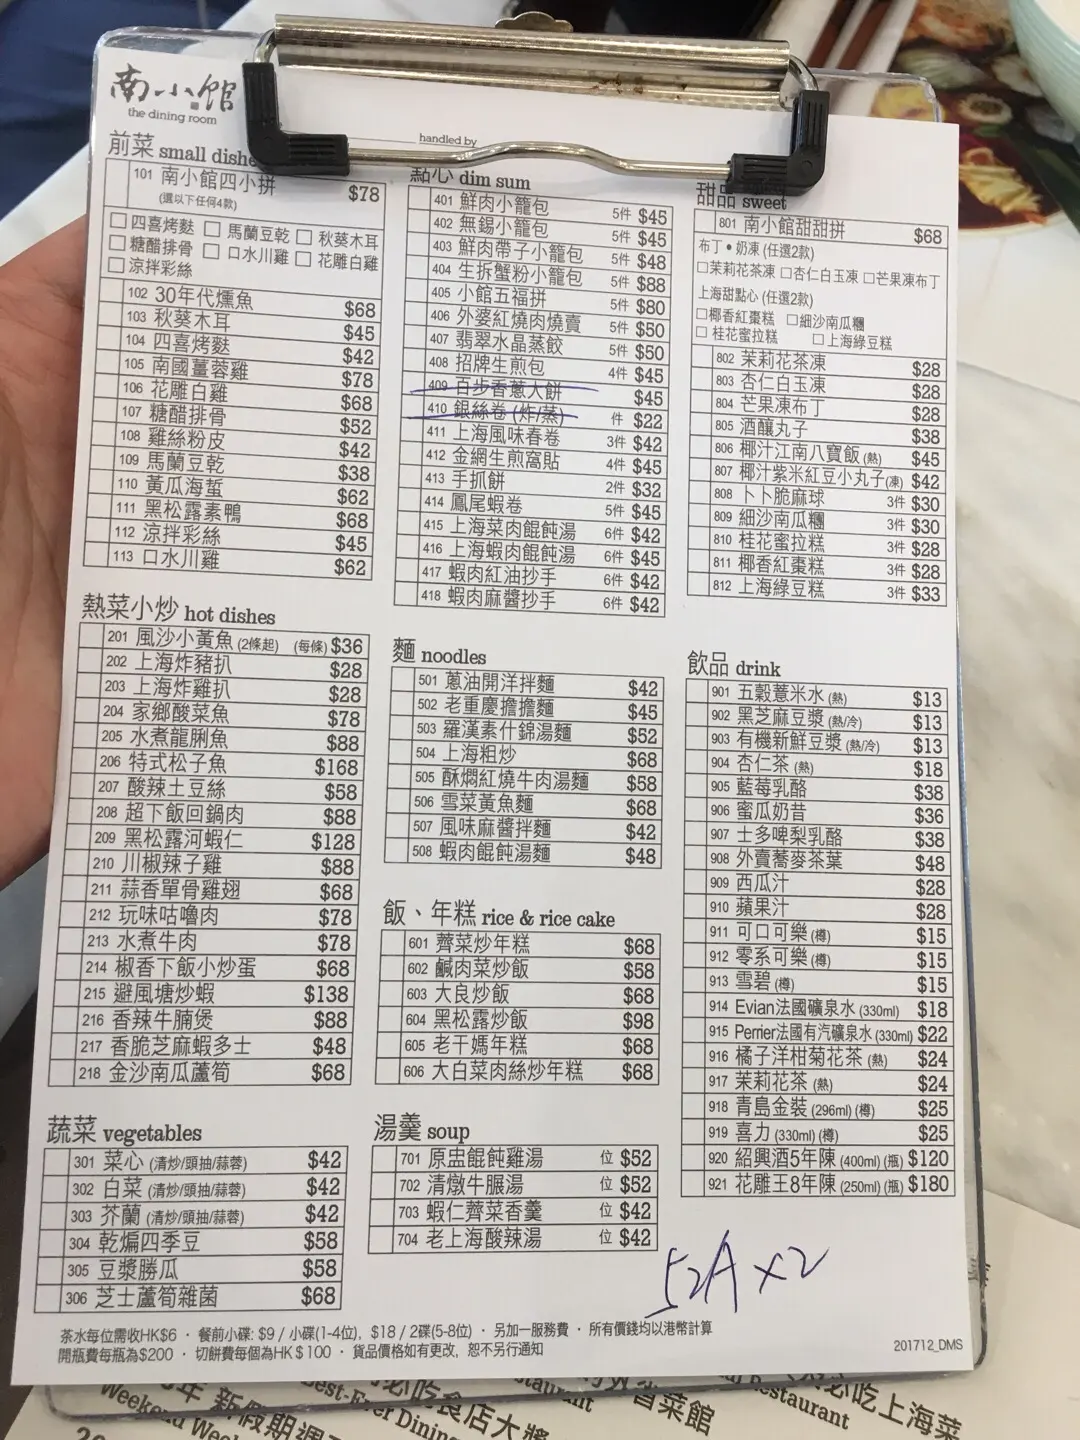 南小館
the dining room
handled by
前菜 small dishe
101 南小館四小拼 $78
(選以下任何4款)
□四喜烤麩 □馬蘭豆乾 □秋葵木耳
□糖醋排骨 □口水川雞 □花雕白雞
□涼拌彩絲
102 30年代燻魚 $68
103 秋葵木耳 $45
104 四喜烤麩 $42
105 南國薑蓉雞 $78
106 花雕白雞 $68
107 糖醋排骨 $52
108 雞絲粉皮 $42
109 馬蘭豆乾 $38
110 黃瓜海蜇 $62
111 黑松露素鴨 $68
112 涼拌彩絲 $45
113 口水川雞 $62
熱菜小炒 hot dishes
201 風沙小黃魚 (2條起) (每條) $36
202 上海炸豬扒 $28
203 上海炸雞扒 $28
204 家鄉酸菜魚 $78
205 水煮龍脷魚 $88
206 特式松子魚 $168
207 酸辣土豆絲 $58
208 超下飯回鍋肉 $88
209 黑松露河蝦仁 $128
210 川椒辣子雞 $88
211 蒜香單骨雞翅 $68
212 玩味咕嚕肉 $78
213 水煮牛肉 $78
214 椒香下飯小炒蛋 $68
215 避風塘炒蝦 $138
216 香辣牛腩煲 $88
217 香脆芝麻蝦多士 $48
218 金沙南瓜蘆筍 $68
蔬菜 vegetables
301 菜心 (清炒/頭抽/蒜蓉) $42
302 白菜 (清炒/頭抽/蒜蓉) $42
303 芥蘭 (清炒/頭抽/蒜蓉) $42
304 乾煸四季豆 $58
305 豆漿勝瓜 $58
306 芝士蘆筍雜菌 $68
點心 dim sum
401 鮮肉小籠包 5件 $45
402 無錫小籠包 5件 $45
403 鮮肉帶子小籠包 5件 $48
404 生拆蟹粉小籠包 5件 $88
405 小館五福拼 5件 $80
406 外婆紅燒肉燒賣 5件 $50
407 翡翠水晶蒸餃 5件 $50
408 招牌生煎包 4件 $45
409 百步香蔥大餅 $45
410 銀絲卷 (炸/蒸) 件 $22
411 上海風味春卷 3件 $42
412 金網生煎窩貼 4件 $45
413 手抓餅 2件 $32
414 鳳尾蝦卷 5件 $45
415 上海菜肉餛飩湯 6件 $42
416 上海蝦肉餛飩湯 6件 $45
417 蝦肉紅油抄手 6件 $42
418 蝦肉麻醬抄手 6件 $42
麵 noodles
501 蔥油開洋拌麵 $42
502 老重慶擔擔麵 $45
503 羅漢素什錦湯麵 $52
504 上海粗炒 $68
505 酥燜紅燒牛肉湯麵 $58
506 雪菜黃魚麵 $68
507 風味麻醬拌麵 $42
508 蝦肉餛飩湯麵 $48
飯、年糕 rice & rice cake
601 薺菜炒年糕 $68
602 鹹肉菜炒飯 $58
603 大良炒飯 $68
604 黑松露炒飯 $98
605 老干媽年糕 $68
606 大白菜肉絲炒年糕 $68
湯羹 soup
701 原盅餛飩雞湯 位 $52
702 清燉牛𦟌湯 位 $52
703 蝦仁薺菜香羹 位 $42
704 老上海酸辣湯 位 $42
甜品 sweet
801 南小館甜甜拼 $68
布丁•奶凍 (任選2款)
□茉莉花茶凍 □杏仁白玉凍 □芒果凍布丁
上海甜點心 (任選2款)
□椰香紅棗糕 □細沙南瓜糰
□桂花蜜拉糕 □上海綠豆糕
802 茉莉花茶凍 $28
803 杏仁白玉凍 $28
804 芒果凍布丁 $28
805 酒釀丸子 $38
806 椰汁江南八寶飯 (熱) $45
807 椰汁紫米紅豆小丸子(凍) $42
808 卜卜脆麻球 3件 $30
809 細沙南瓜糰 3件 $30
810 桂花蜜拉糕 3件 $28
811 椰香紅棗糕 3件 $28
812 上海綠豆糕 3件 $33
飲品 drink
901 五穀薏米水 (熱) $13
902 黑芝麻豆漿 (熱/冷) $13
903 有機新鮮豆漿 (熱/冷) $13
904 杏仁茶 (熱) $18
905 藍莓乳酪 $38
906 蜜瓜奶昔 $36
907 士多啤梨乳酪 $38
908 外賣蕎麥茶葉 $48
909 西瓜汁 $28
910 蘋果汁 $28
911 可口可樂 (樽) $15
912 零系可樂 (樽) $15
913 雪碧 (樽) $15
914 Evian法國礦泉水 (330ml) $18
915 Perrier法國有汽礦泉水 (330ml) $22
916 橘子洋柑菊花茶 (熱) $24
917 茉莉花茶 (熱) $24
918 青島金裝 (296ml) (樽) $25
919 喜力 (330ml) (樽) $25
920 紹興酒5年陳 (400ml) (瓶) $120
921 花雕王8年陳 (250ml) (瓶) $180
52A x2
茶水每位需收HK$6 · 餐前小碟: $9 / 小碟(1-4位), $18 / 2碟(5-8位) · 另加一服務費 · 所有價錢均以港幣計算
開瓶費每瓶為$200 · 切餅費每個為HK$100 · 貨品價格如有更改, 恕不另行通知
201712_DMS
年 新假期週
必吃食店大獎
省菜館
必吃上海菜
Weekend Week
Best-Ever Dining
staurant
Restaurant